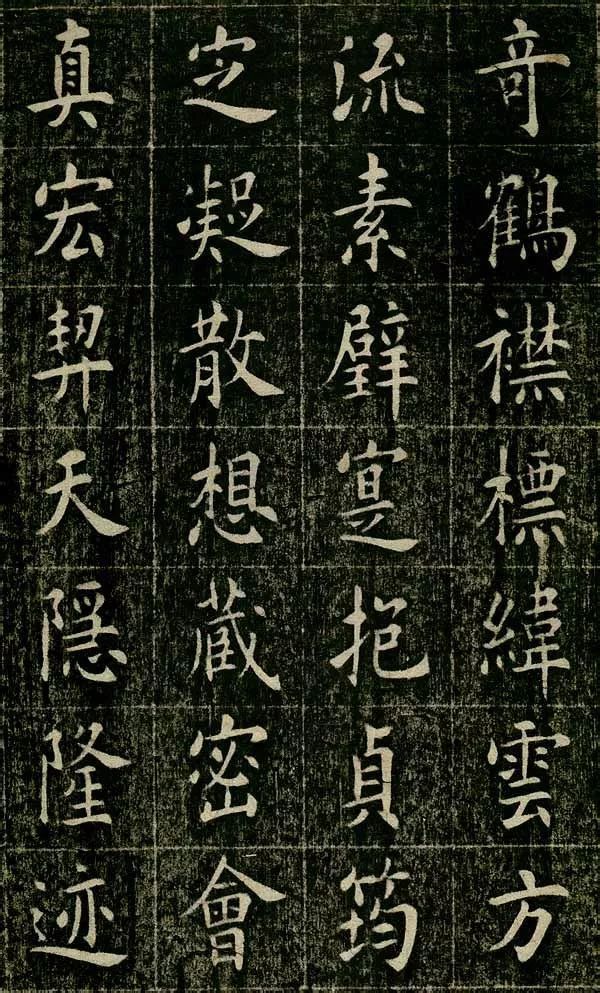 竒鶴襟標緯雲方
流素璧寔抱貞筠
㝎凝散想蔵密會
真宏契天隱隆迹